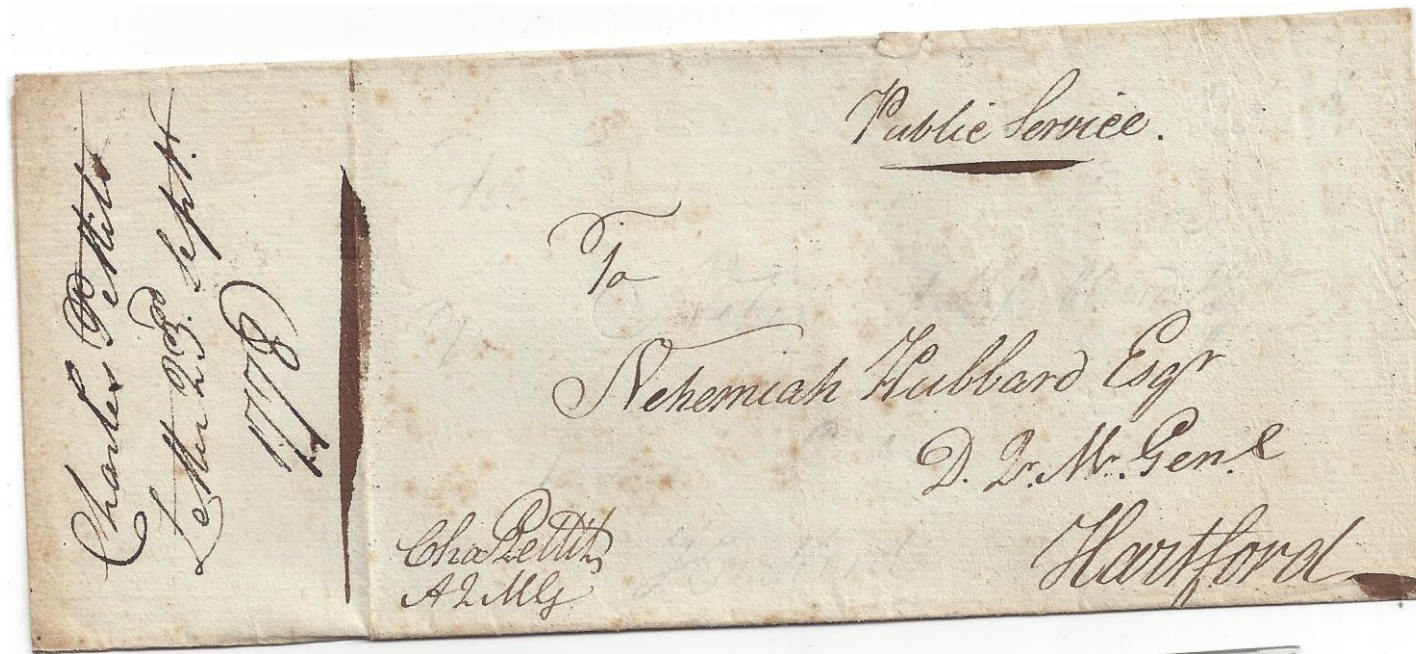 Charles Pettits
Letter 23rd Sept.
1778
Public Service.
To
Nehemiah Hubbard Esqr
D. Qr. Mr. Genl
Hartford
Cha Pettit
AQMG